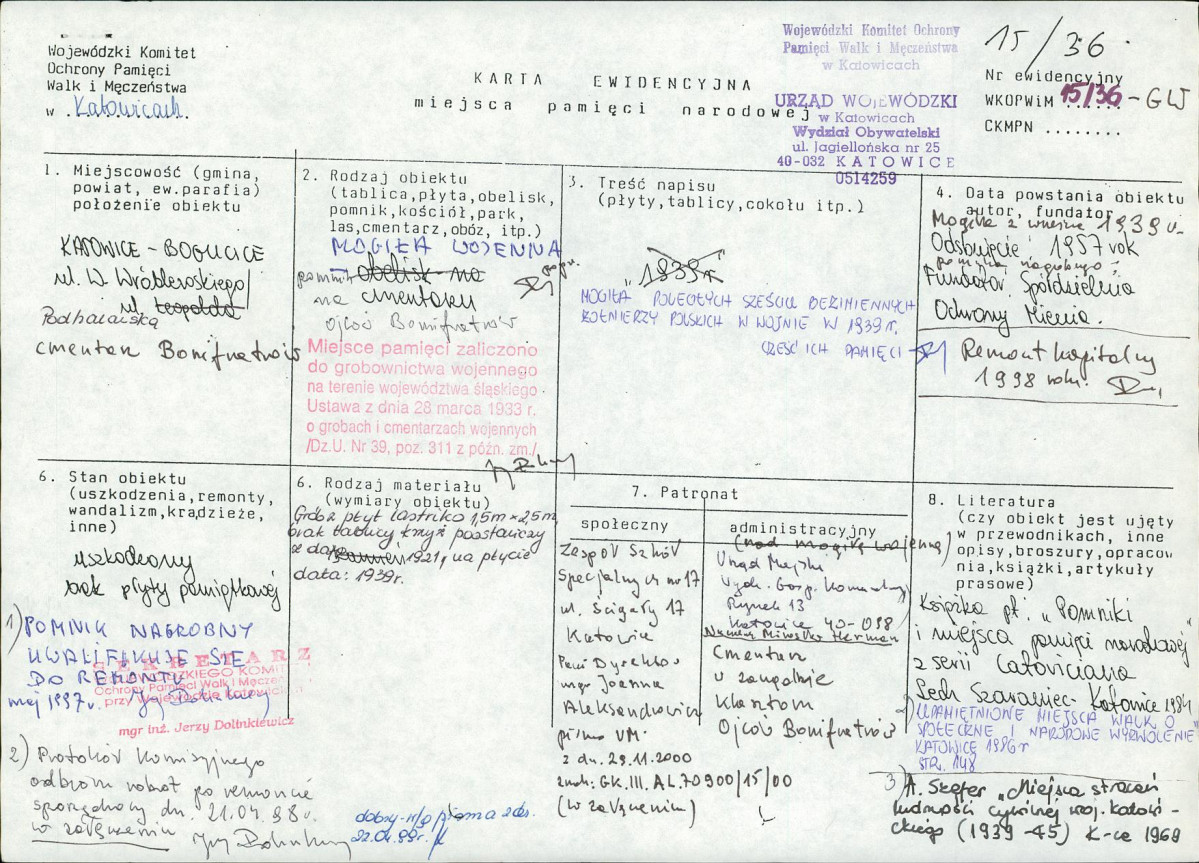 Wojewódzki Komitet
Ochrony Pamięci
Walk i Męczeństwa
w Katowicach.
KARTA EWIDENCYJNA
miejsca pamięci narodowej
Wojewódzki Komitet Ochrony
Pamięci Walk i Męczeństwa
w Katowicach
URZĄD WOJEWÓDZKI
w Katowicach
Wydział Obywatelski
ul. Jagiellońska nr 25
40-032 KATOWICE
0514259
15/36
Nr ewidencyjny
WKOPWiM 15/36 - GW
CKMPN ........
1. Miejscowość (gmina,
powiat, ew.parafia)
położenie obiektu
KATOWICE - BOGUCICE
ul. W. Wróblewskiego/
ul. Leopolda
Podhalańska
cmentarz Bonifratrów
2. Rodzaj obiektu
(tablica,płyta,obelisk,
pomnik,kościół,park,
las,cmentarz,obóz, itp.)
MOGIŁA WOJENNA
pomnik obelisk na
na cmentarzu
Ojców Bonifratrów
Miejsce pamięci zaliczono
do grobownictwa wojennego
na terenie województwa śląskiego
Ustawa z dnia 28 marca 1933 r.
o grobach i cmentarzach wojennych
/Dz.U. Nr 39, poz. 311 z późn. zm./
3. Treść napisu
(płyty,tablicy,cokołu itp.)
"1939r"
MOGIŁA POLEGŁYCH SZEŚCIU BEZIMIENNYCH
ŻOŁNIERZY POLSKICH W WOJNIE W 1939 r.
CZEŚĆ ICH PAMIĘCI
4. Data powstania obiektu
autor, fundator
Mogiła z września 1939 r.
Odsłonięcie 1957 rok
pomnika nagrobnego
Fundator. Spółdzielnia
Ochrony Mienia.
Remont kapitalny
1998 roku.
6. Stan obiektu
(uszkodzenia,remonty,
wandalizm,kradzieże,
inne)
uszkodzony
brak płyty pamiątkowej
1) POMNIK NAGROBNY
KWALIFIKUJE SIĘ
DO REMONTU
maj 1997r.
SEKRETARZ
WOJEWÓDZKIEGO KOMITETU
Ochrony Pamięci Walk i Męczeństwa
przy Wojewodzie Katowickim
mgr inż. Jerzy Dolinkiewicz
2) Protokół Komisyjnego
odbioru robót po remoncie
sporządzony dn. 21.04.98r.
w załączeniu
6. Rodzaj materiału
(wymiary obiektu)
Grób z płyt lastriko 1,5m x 2,5m
brak tablicy krzyż powstańczy
z datą 1921, na płycie
data: 1939r.
dobry - w/g pisma z dn.
22.04.99r.
7. Patronat
społeczny
Zespół Szkół
Specjalnych nr 17
ul. Ścigały 17
Katowice
Pani Dyrektor
mgr Joanna
Aleksandrowicz
pismo UM.
z dn. 29.11.2000
znak: GK.III.AL.70900/15/00
(w załączeniu)
administracyjny
(nad mogiłą wojenną)
Urząd Miejski
Wydz. Gosp. Komunalnej
Rynek 13
Katowice 40-098
Cmentarz
w zarządzie
Klasztoru
Ojców Bonifratrów
8. Literatura
(czy obiekt jest ujęty
w przewodnikach, inne
opisy,broszury,opracow
nia,książki,artykuły
prasowe)
Książka pt. "Pomniki
i miejsca pamięci narodowej"
z serii Catoviciana
Lech Szaraniec - Katowice 1984
2) UPAMIĘTNIONE MIEJSCA WALK O
SPOŁECZNE I NARODOWE WYZWOLENIE
KATOWICE 1986r
STR. 148
3) A. Szefer "Miejsca straceń
ludności cywilnej woj. katowi-
ckiego (1939-45) K-ce 1969